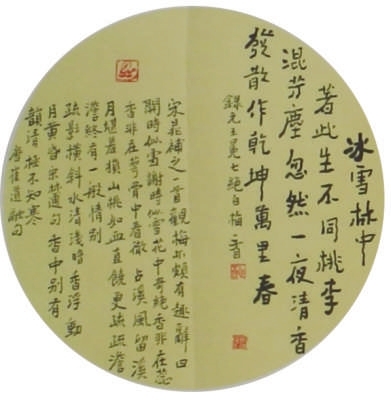 冰雪林中
著此生不同桃李
混芳塵忽然一夜清香
發散作乾坤萬里春
錄元王冕七絕白梅一首
宋晁補之一首觀梅亦頗有趣辭曰
開時似雪謝時似雪花中奇絕香非在蕊
香非在萼骨中香徹占溪風留溪
月堪羞損山桃如血直饒更疏疏澹
澹終有一般情別
疏影橫斜水清淺暗香浮動
月黃昏宋林逋句香中別有
韻清極不知寒
唐崔道融句